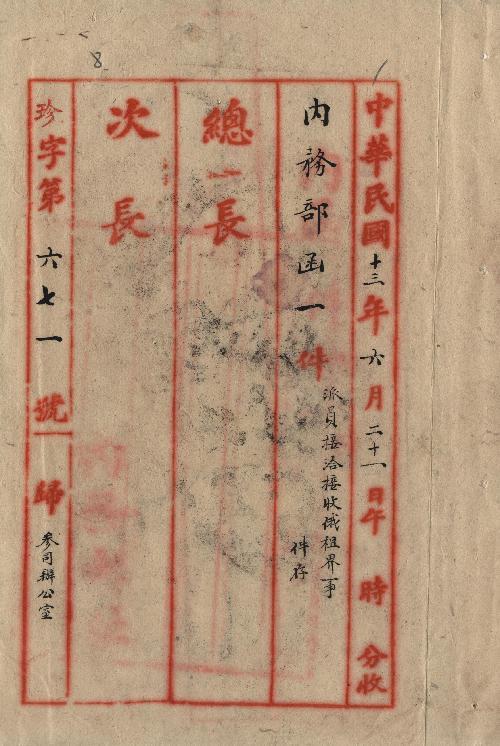 中華民國十三年六月二十一日午時分收
內務部函一件
派員接洽接收俄租界事
件存
總長
次長
珍字第六七一號歸參司辦公室
8